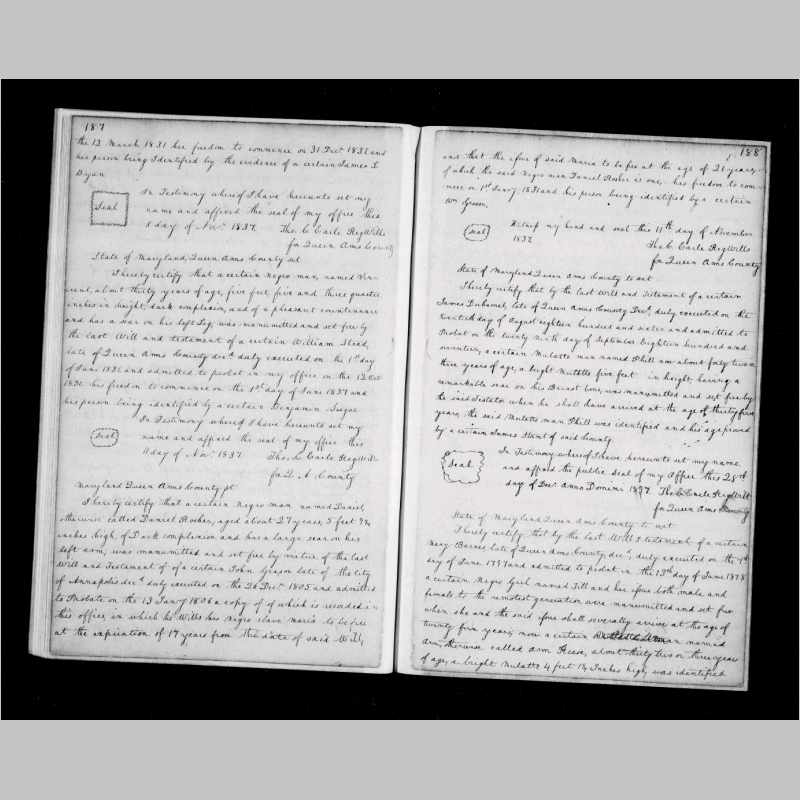 187
the 13 March 1831 her freedom to commence on 31 Decr 1836 and
his person being Identified by the evidence of a certain James L
Bryan
In Testimony whereof I have hereunto set my
Seal
name and affixed the seal of my office this
8 day of Novr 1837. Tho. C Earle RegWills
for Queen Anns County
State of Maryland, Queen Anns County sct
I hereby certify that a certain negro man, named
about thirty years of age, five feet, five and three quarter
inches in height, dark complexion, and of a pleasant countenance
and has a scar on his left leg, was manumitted and set free by
the last Will and testament of a certain William
late of Queen Anns County decd duly executed on the 1st day
of June 1836 and admitted to probat in my office on the 13 Oct
1836 his freedom to commence on the 1st day of Jany 1837 and
his person being identified by a certain Benjamin
In Testimony whereof I have hereunto set my
Seal
name and affixed the seal of my office this
11 day of Novr 1837 Tho. C Earle RegWills
for Q. A County
Maryland Queen Anns County sct
I hereby certify that a certain negro man named Daniel,
otherwise called Daniel Rosher, aged about 27 years, 5 feet
inches high, of Dark complexion and has a large scar on his
left arm, was manumitted and set free by virtue of the last
Will and Testament of of a certain John Gibson late of the City
of Annapolis decd duly executed on the 20 Decr 1805 and admitted
to Probate on the 13 Jany 1806 a copy of of which is recorded in
this office, in which he Wills his negro slave Maria to be free
at the expiration of 17 years from the date of said Will,
188
and that the issue of said Maria to be free at the age of 26 years,
of which the said negro man Daniel Rosher is one, his freedom to com-
mence on 1st Jany 1836 and his person being identified by a certain
Wm Green.
Seal
Witness my hand and seal this 11th day of November
1837
Tho. C Earle RegWills
for Queen Anns County
State of Maryland Queen Anns County to wit
I hereby certify that by the last Will and Testament of a certain
James late of Queen Anns County Decd, duly executed on the
day of August eighteen hundred and sixteen and admitted to
Probat on the twenty ninth day of September Eighteen hundred and
seventeen, a certain Mulatto man named Phill am about forty two or
three years of age, a bright Mulatto five feet in height, having a
remarkable scar on his Breast bone, was manumitted and set free by
the said Testator when he shall have arrived at the age of thirty five
years, the said Mulatto man Phill was identified and his age proved
by a certain James of said County
Seal
In Testimony whereof I have hereunto set my name
and affixed the public seal of my Office this 28th
day of Decr Anno Domini 1837 Tho. C. Earle RegWills
for Queen Anns County
State of Maryland Queen Anns County to wit
I hereby certify that by the last Will & testament of a certain
Mary Barnes late of Queen Anns County decd, duly executed on the 7th
day of June 1797 and admitted to probat in the 13th day of June
a certain Negro Girl named Jill and her issue both male and
female to the remotest generation were manumitted and set free
when she and the said issue shall severally arrive at the age of
twenty five years, now a certain man named
Ann, otherwise called Ann Reese, about thirty two or three years
of age, a bright Mulatto 4 feet Inches high, was identified